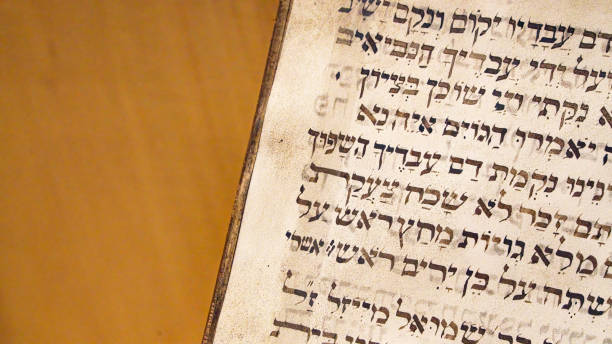 דם עֲבָדָיו יִקוֹם וְנָקָם יָשִׁיב
עַל יְדֵי עֲבָדֶיךָ הַנְבִיאִים
נִקֵּתִי וַיְיָ שׁוֹכֵן בְּצִיּוֹן .
יֹאמְרוּ הַגּוֹיִם אַיֵּה נָא
נִקְמַת דַּם עֲבָדֶיךָ הַשָּׁפוּךְ
זָכָר לֹא שָׁכַח צַעֲקַת
מָלֵא גְוִיּוֹת מָחַץ רֹאשׁ עַל
שְׁתֶּה עַל כֵּן יָרִים רֹאשׁ: אשרי
שמואל מייזל ז״ל